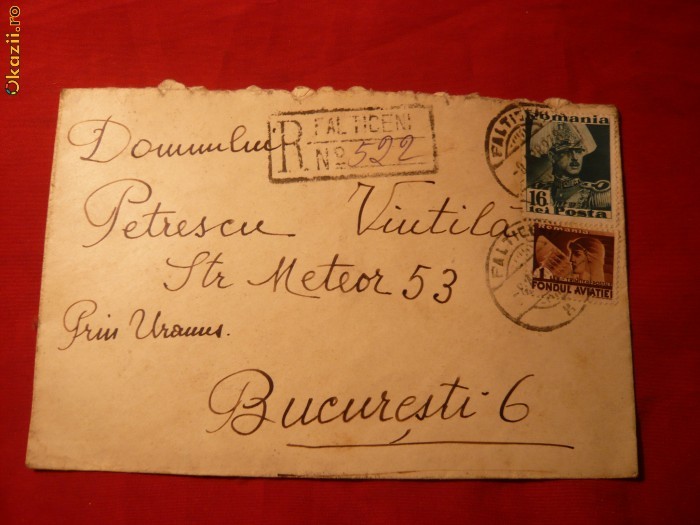 Okazii.ro
R FALTICENI
No 522
Domnului
Petrescu Vintilă
Str Meteor 53
Prin Uranus.
București 6
FALTICE
Romania
16
lei Posta
FALTICE
Romania
1
FONDUL AVIATIEI